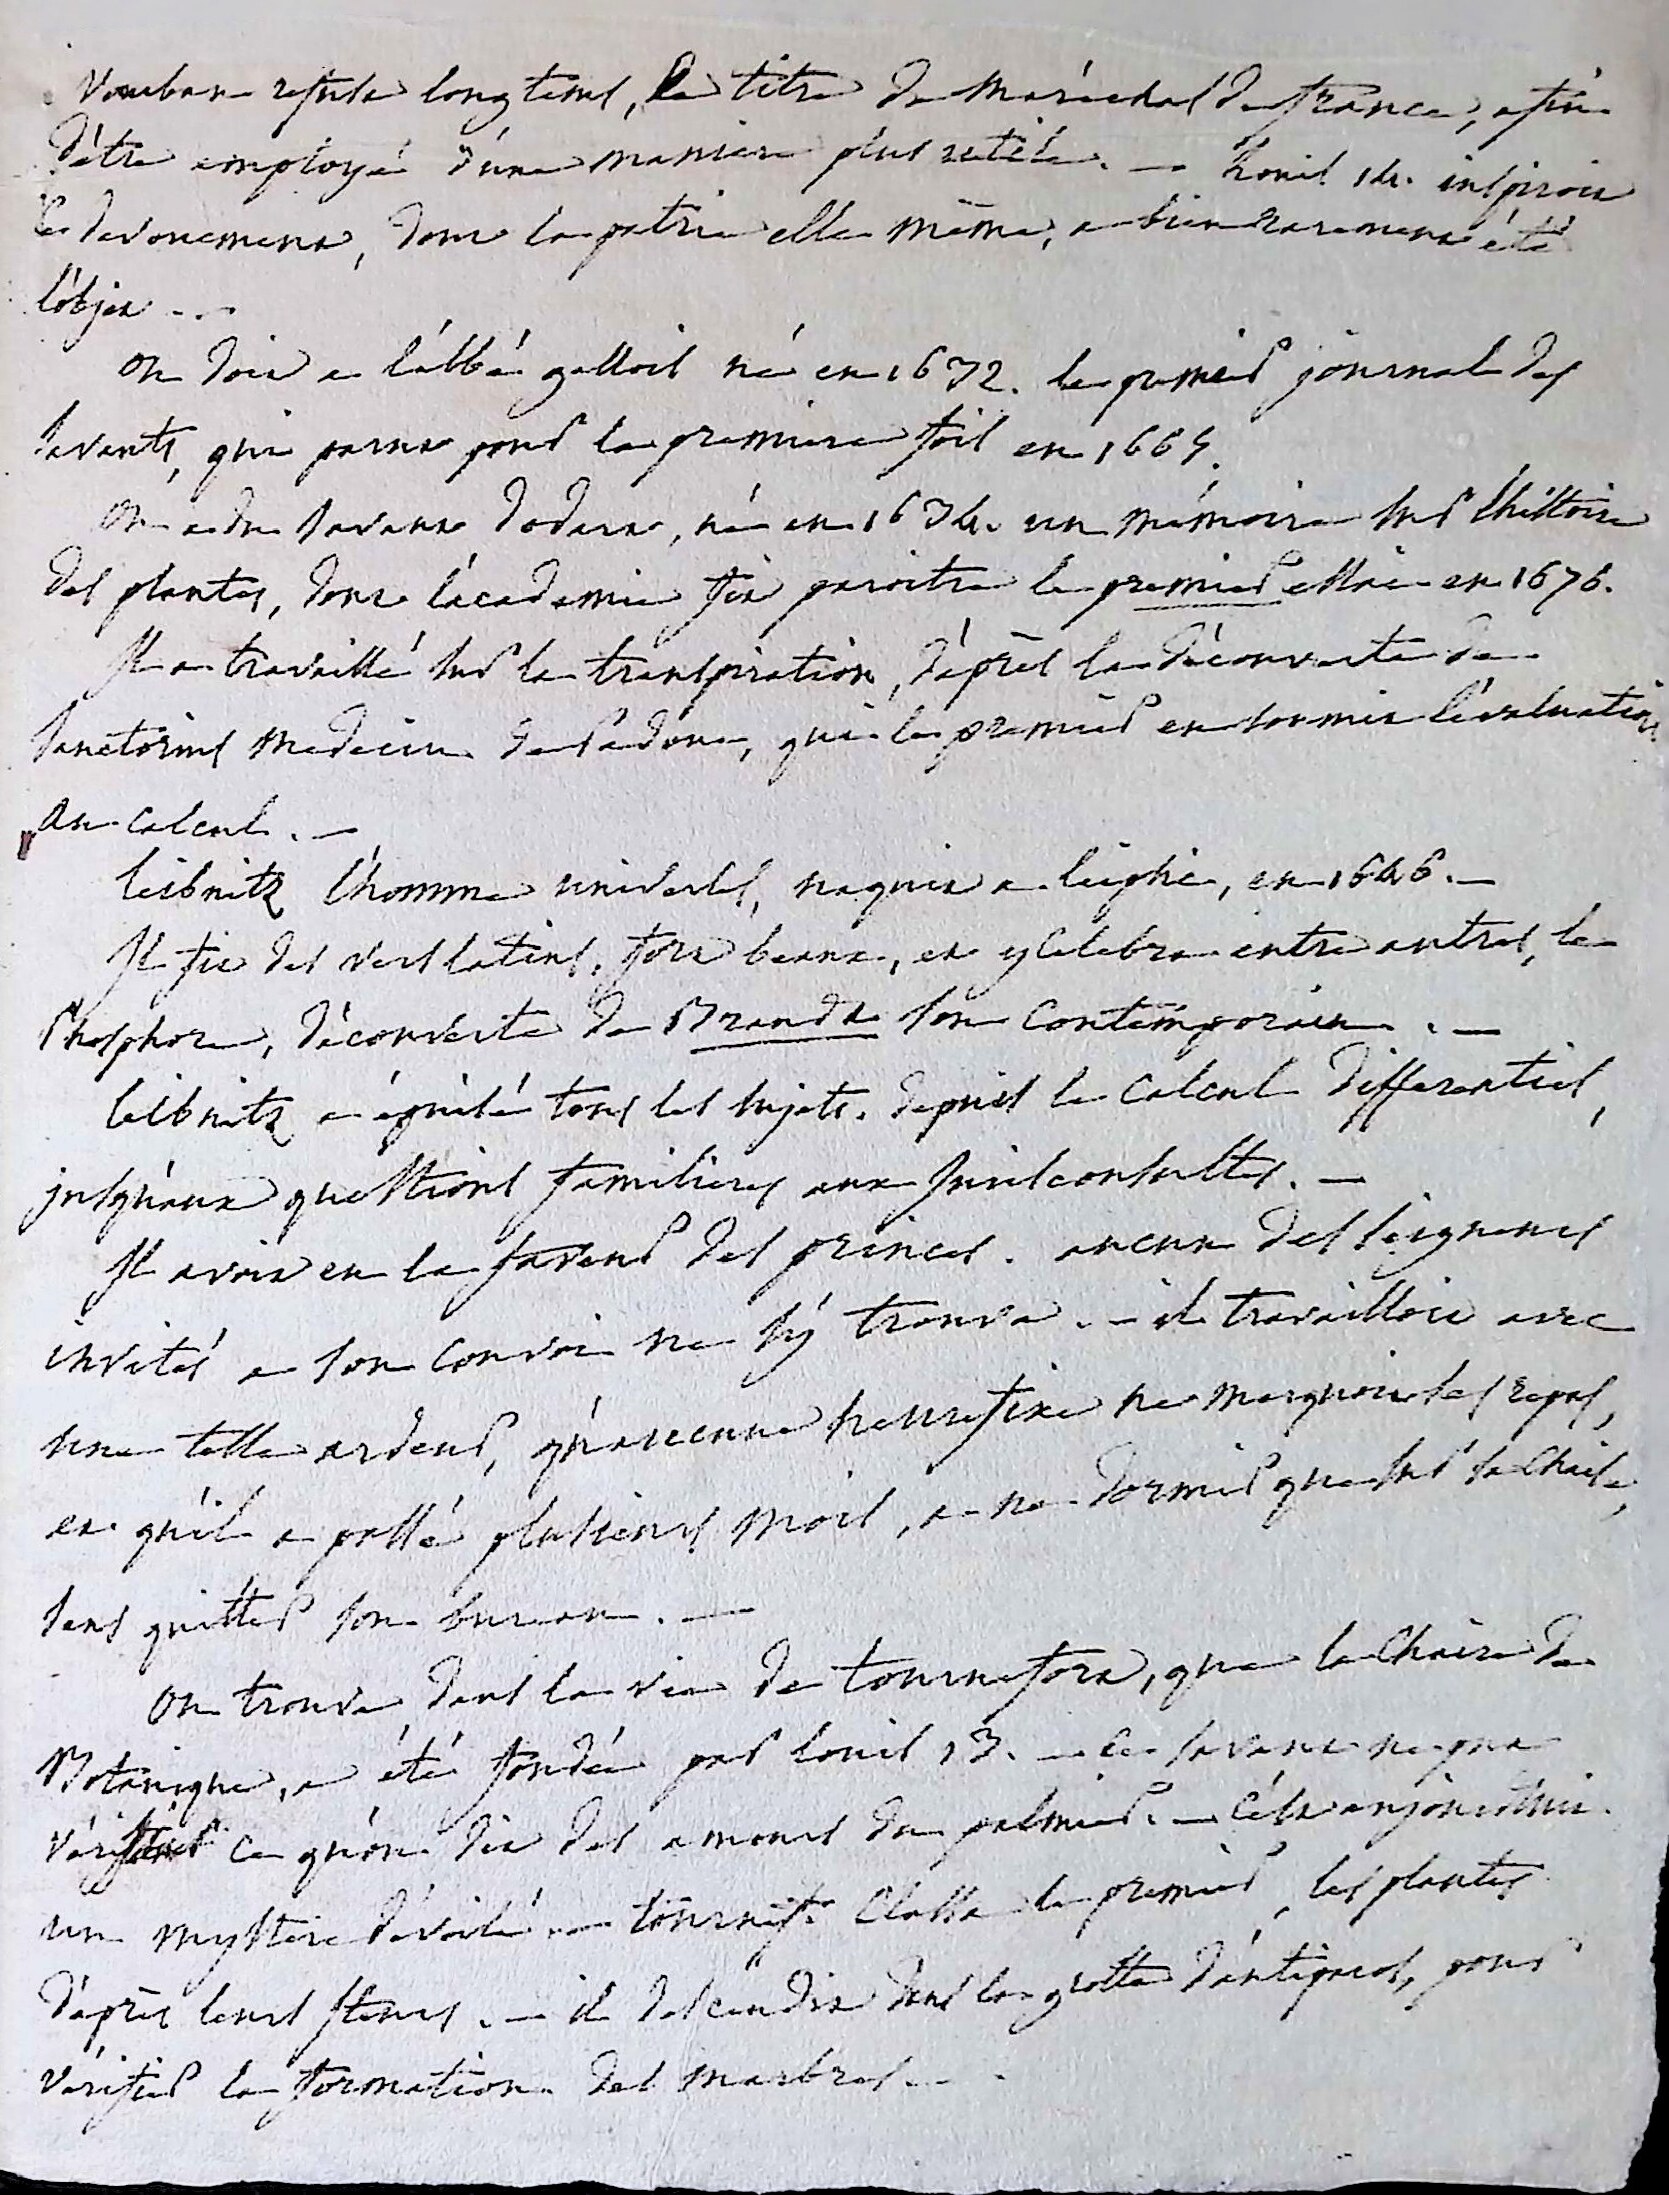 Vauban refusa longtems, le titre de Maréchal de france, afin
d'être employé d'une maniere plus utile. — Louis 14. inspiroit
ce devouement, dont la patrie elle même, a bien rarement été
l'objet - . -
On doit a l'abbé gallois né en 1632. le premier journal des
savants, qui parut pour la premiere fois en 1665.
On a du savant Dodart, né en 1634. un mémoire sur l'histoire
des plantes, dont l'académie fit paroitre le premier essai en 1676.
Il a travaillé sur la transpiration, d'après la découverte de
Sanctorius medecin de Padoue, qui le premier en soumit l'évaluation
au calcul. —
Leibnitz l'homme universel, naquit a Leipsic, en 1646. —
Il fit des vers latins, fort beaux, et y celebra entre autres, le
Phosphore, découverte de Brandt son contemporain. —
Leibnitz a épuisé tous les sujets. depuis le calcul differentiel,
jusqu'aux questions familieres aux Jurisconsultes. —
Il avoit eu la faveur des princes. aucun des seigneurs
invités a son convoi ne s'y trouva. — il travailloit avec
une telle ardeur, qu'aucune heure fixe ne marquoit ses repas,
et qu'il a passé plusieurs mois, a ne dormir que sur sa chaise,
sans quitter son bureau. —
On trouve dans la vie de tournefort, que la chaire de
Botanique, a été fondée par Louis 13. — ce savant ne put
vérifier ce qu'on dit des amours du palmier. — c'est aujourdhui
un mystere dévoilé — tournef. classa le premier, les plantes
d'après leurs fleurs. — il descendit dans la grotte d'antiparos, pour
vérifier la formation des marbres. - -